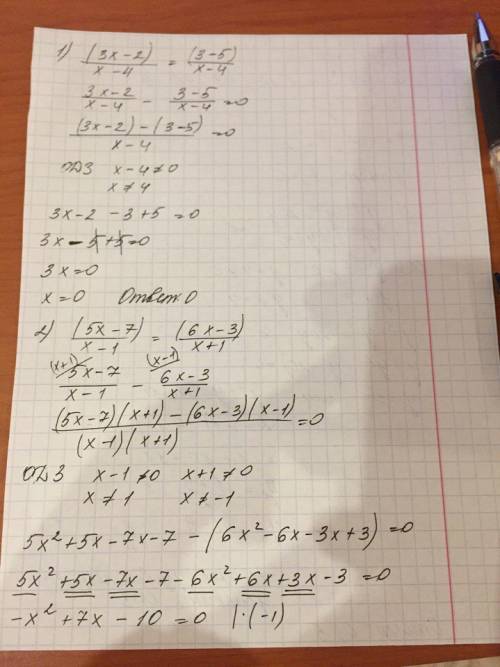 1) (3x-2)/(x-4) = (3-5)/(x-4)
(3x-2)/(x-4) - (3-5)/(x-4) = 0
((3x-2)-(3-5))/(x-4) = 0
ОДЗ x-4≠0
x≠4
3x-2-3+5=0
3x-5+5=0
3x=0
x=0 Ответ: 0
2) (5x-7)/(x-1) = (6x-3)/(x+1)
(x+1)/ (5x-7)/(x-1) - (x-1)/ (6x-3)/(x+1)
((5x-7)(x+1)-(6x-3)(x-1))/((x-1)(x+1)) = 0
ОДЗ x-1≠0 x+1≠0
x≠1 x≠-1
5x²+5x-7x-7-(6x²-6x-3x+3)=0
5x²+5x-7x-7-6x²+6x+3x-3=0
-x²+7x-10=0 |·(-1)